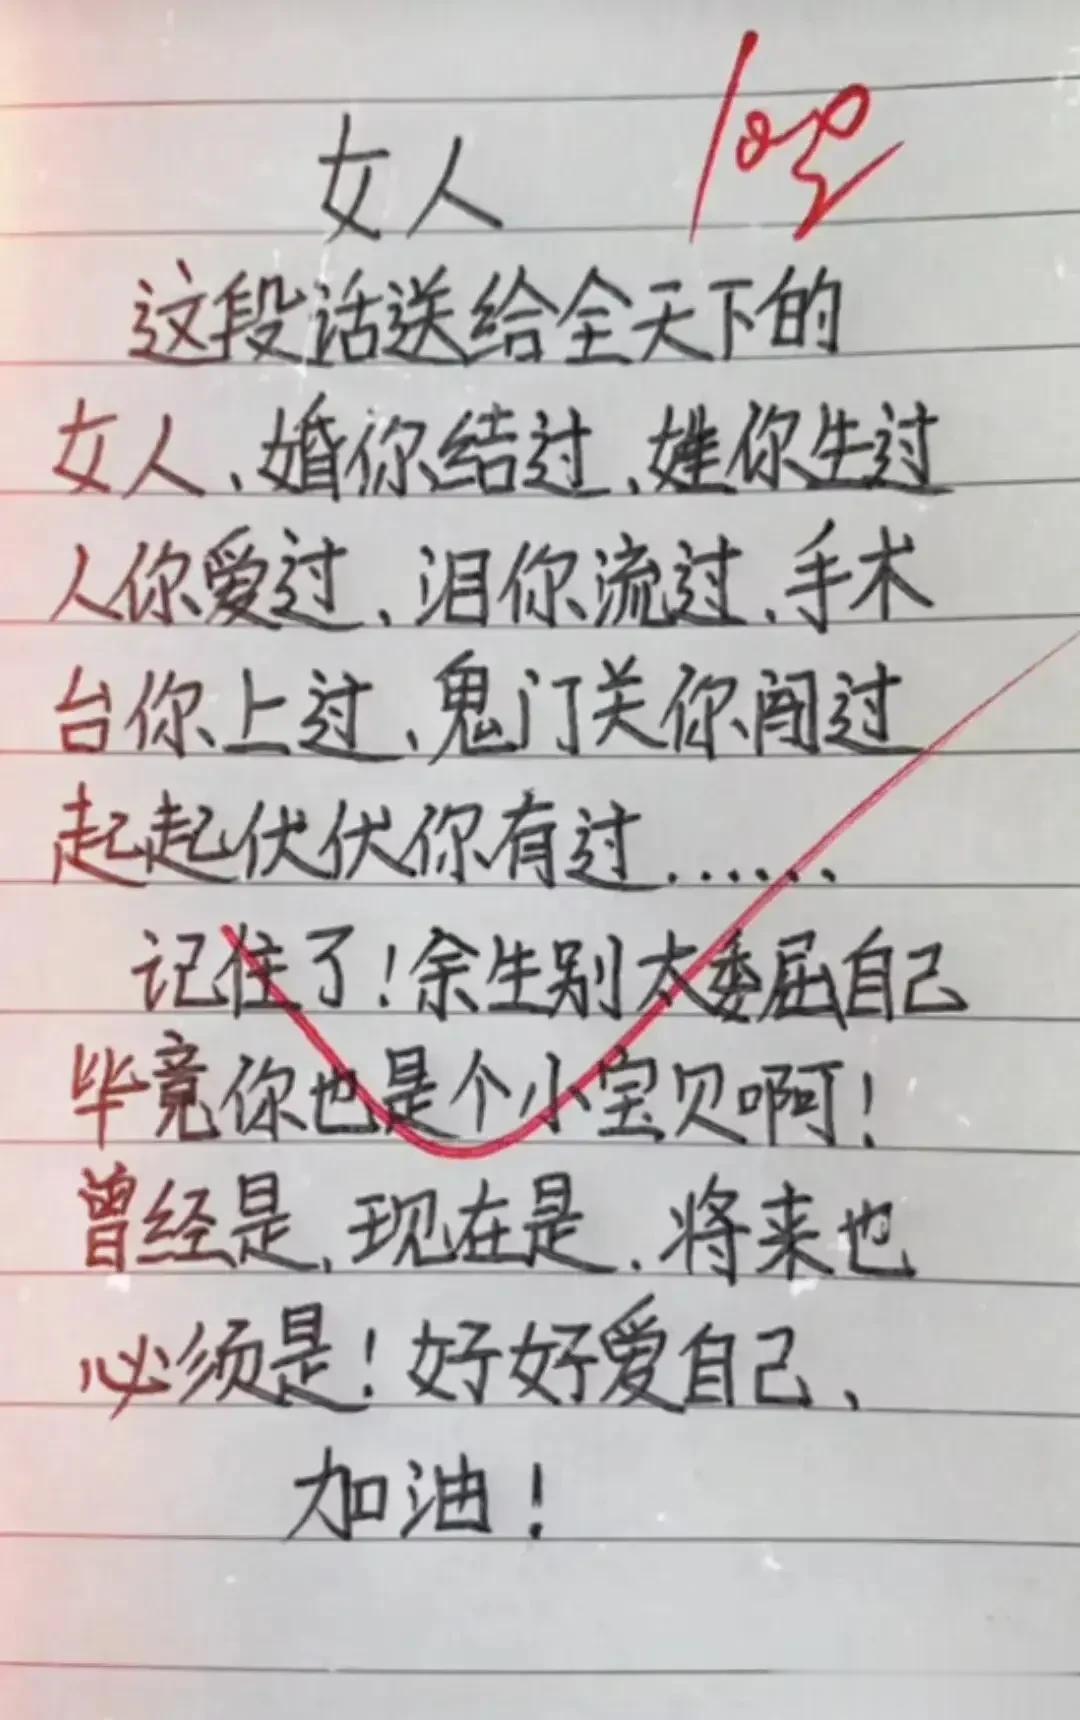 女人
100
这段话送给全天下的
女人、婚你结过、娃你生过
人你爱过、泪你流过、手术
台你上过、鬼门关你闯过
起起伏伏你有过......
记住了!余生别太委屈自己
毕竟你也是个小宝贝啊!
曾经是、现在是、将来也
必须是!好好爱自己、
加油!